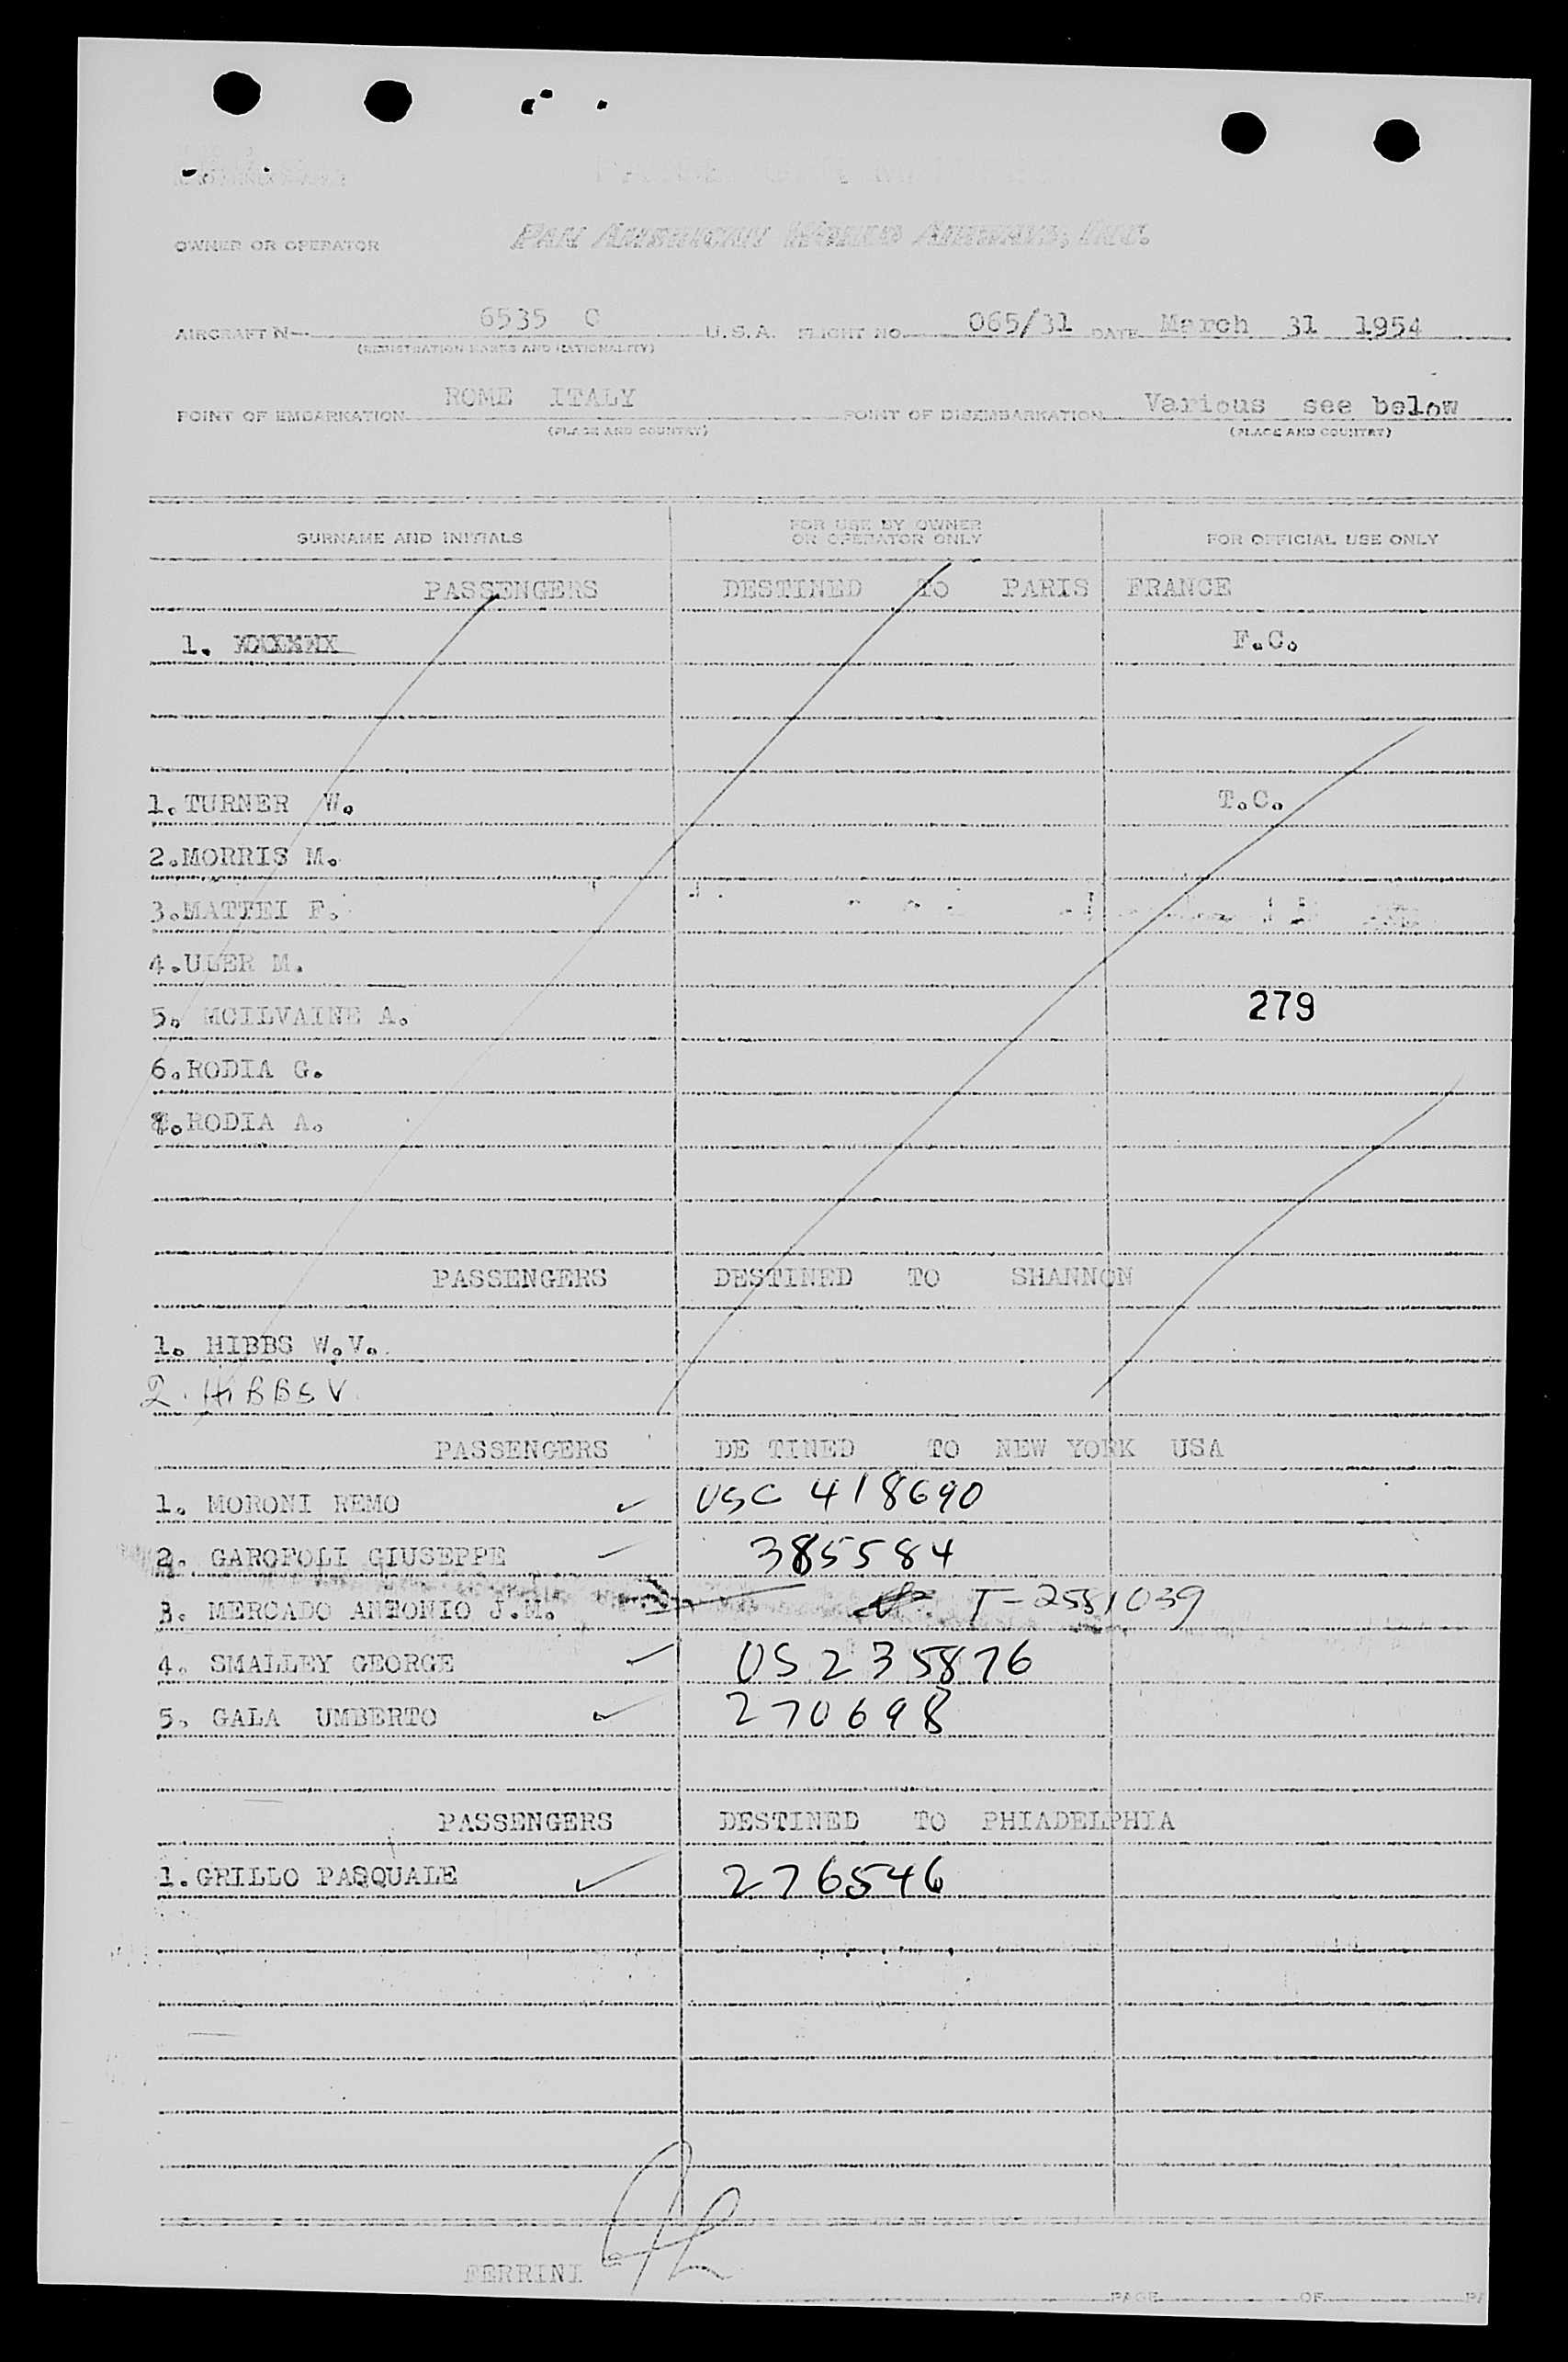 OWNER OR OPERATOR PAN AMERICAN WORLD AIRWAYS, INC.
AIRCRAFT N— 6535 C U.S.A. FLIGHT NO. 065/31 DATE March 31 1954
(REGISTRATION MARKS AND NATIONALITY)
POINT OF EMBARKATION ROME ITALY POINT OF DISEMBARKATION Various see below
(PLACE AND COUNTRY) (PLACE AND COUNTRY)
SURNAME AND INITIALS FOR USE BY OWNER OR OPERATOR ONLY FOR OFFICIAL USE ONLY
PASSENGERS DESTINED TO PARIS FRANCE
1. F.C.
1.TURNER W. T.C.
2.MORRIS M.
3.MATTEI F.
4.ULER M.
5. MCILVAINE A. 279
6.RODIA G.
7.RODIA A.
PASSENGERS DESTINED TO SHANNON
1. HIBBS W.V.
2. HIBBS V.
PASSENGERS DE TINED TO NEW YORK USA
1. MORONI REMO ✓ USC 418690
2. GAROFOLI GIUSEPPE 385584
3. MERCADO ANTONIO J.M. T-2581039
4. SMALLEY GEORGE ✓ US 235876
5. GALA UMBERTO ✓ 270698
PASSENGERS DESTINED TO PHIADELPHIA
1.GRILLO PASQUALE ✓ 276546
FERRINI
PAGE OF PA